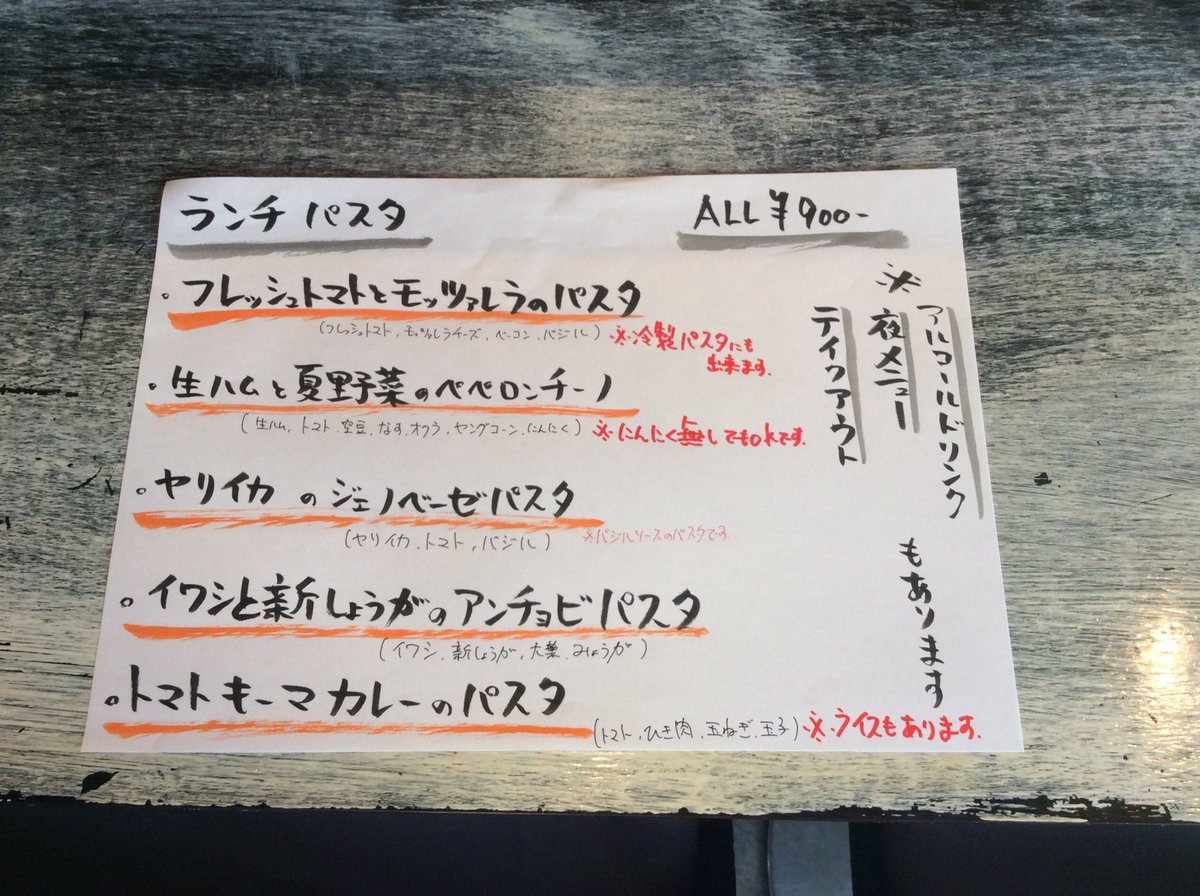 ランチ パスタ
ALL ¥900-
・フレッシュトマトとモッツァレラのパスタ
(フレッシュトマト、モッツァレラチーズ、ベーコン、バジル)
※冷製パスタにも
出来ます。
・生ハムと夏野菜のペペロンチーノ
(生ハム、トマト、空豆、なす、オクラ、ヤングコーン、にんにく)
※にんにく無しでもokです。
・ヤリイカ のジェノベーゼパスタ
(ヤリイカ、トマト、バジル)
※バジルソースのパスタです。
・イワシと新しょうがのアンチョビパスタ
(イワシ、新しょうが、大葉、みょうが)
・トマトキーマカレーのパスタ
(トマト、ひき肉、玉ねぎ、玉子)
※ライスもあります。
アルコールドリンク
※夜メニュー
テイクアウト
もあります